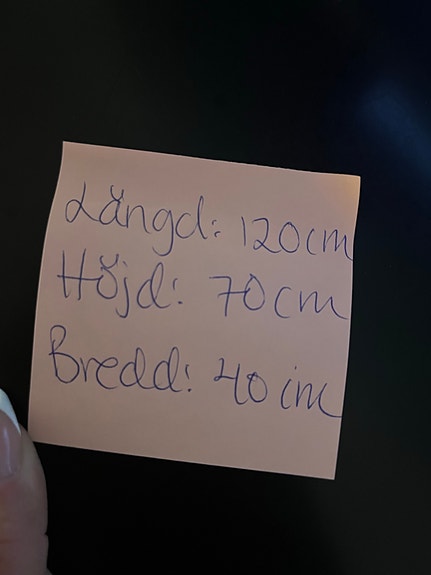 Längd: 120cm
Höjd: 70cm
Bredd: 40cm